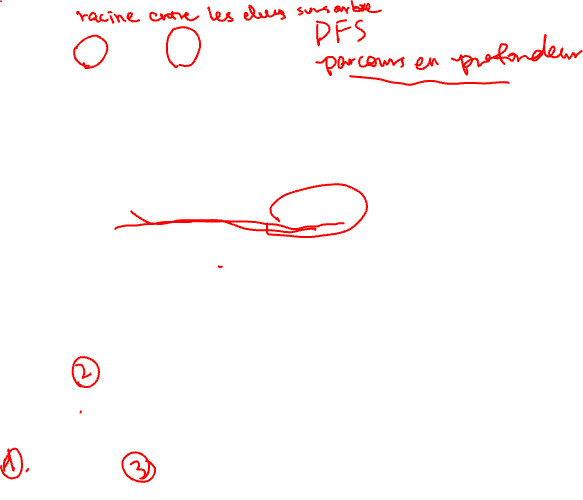 racine entre les deux sous arbre
DFS
parcours en profondeur
2
1.
3